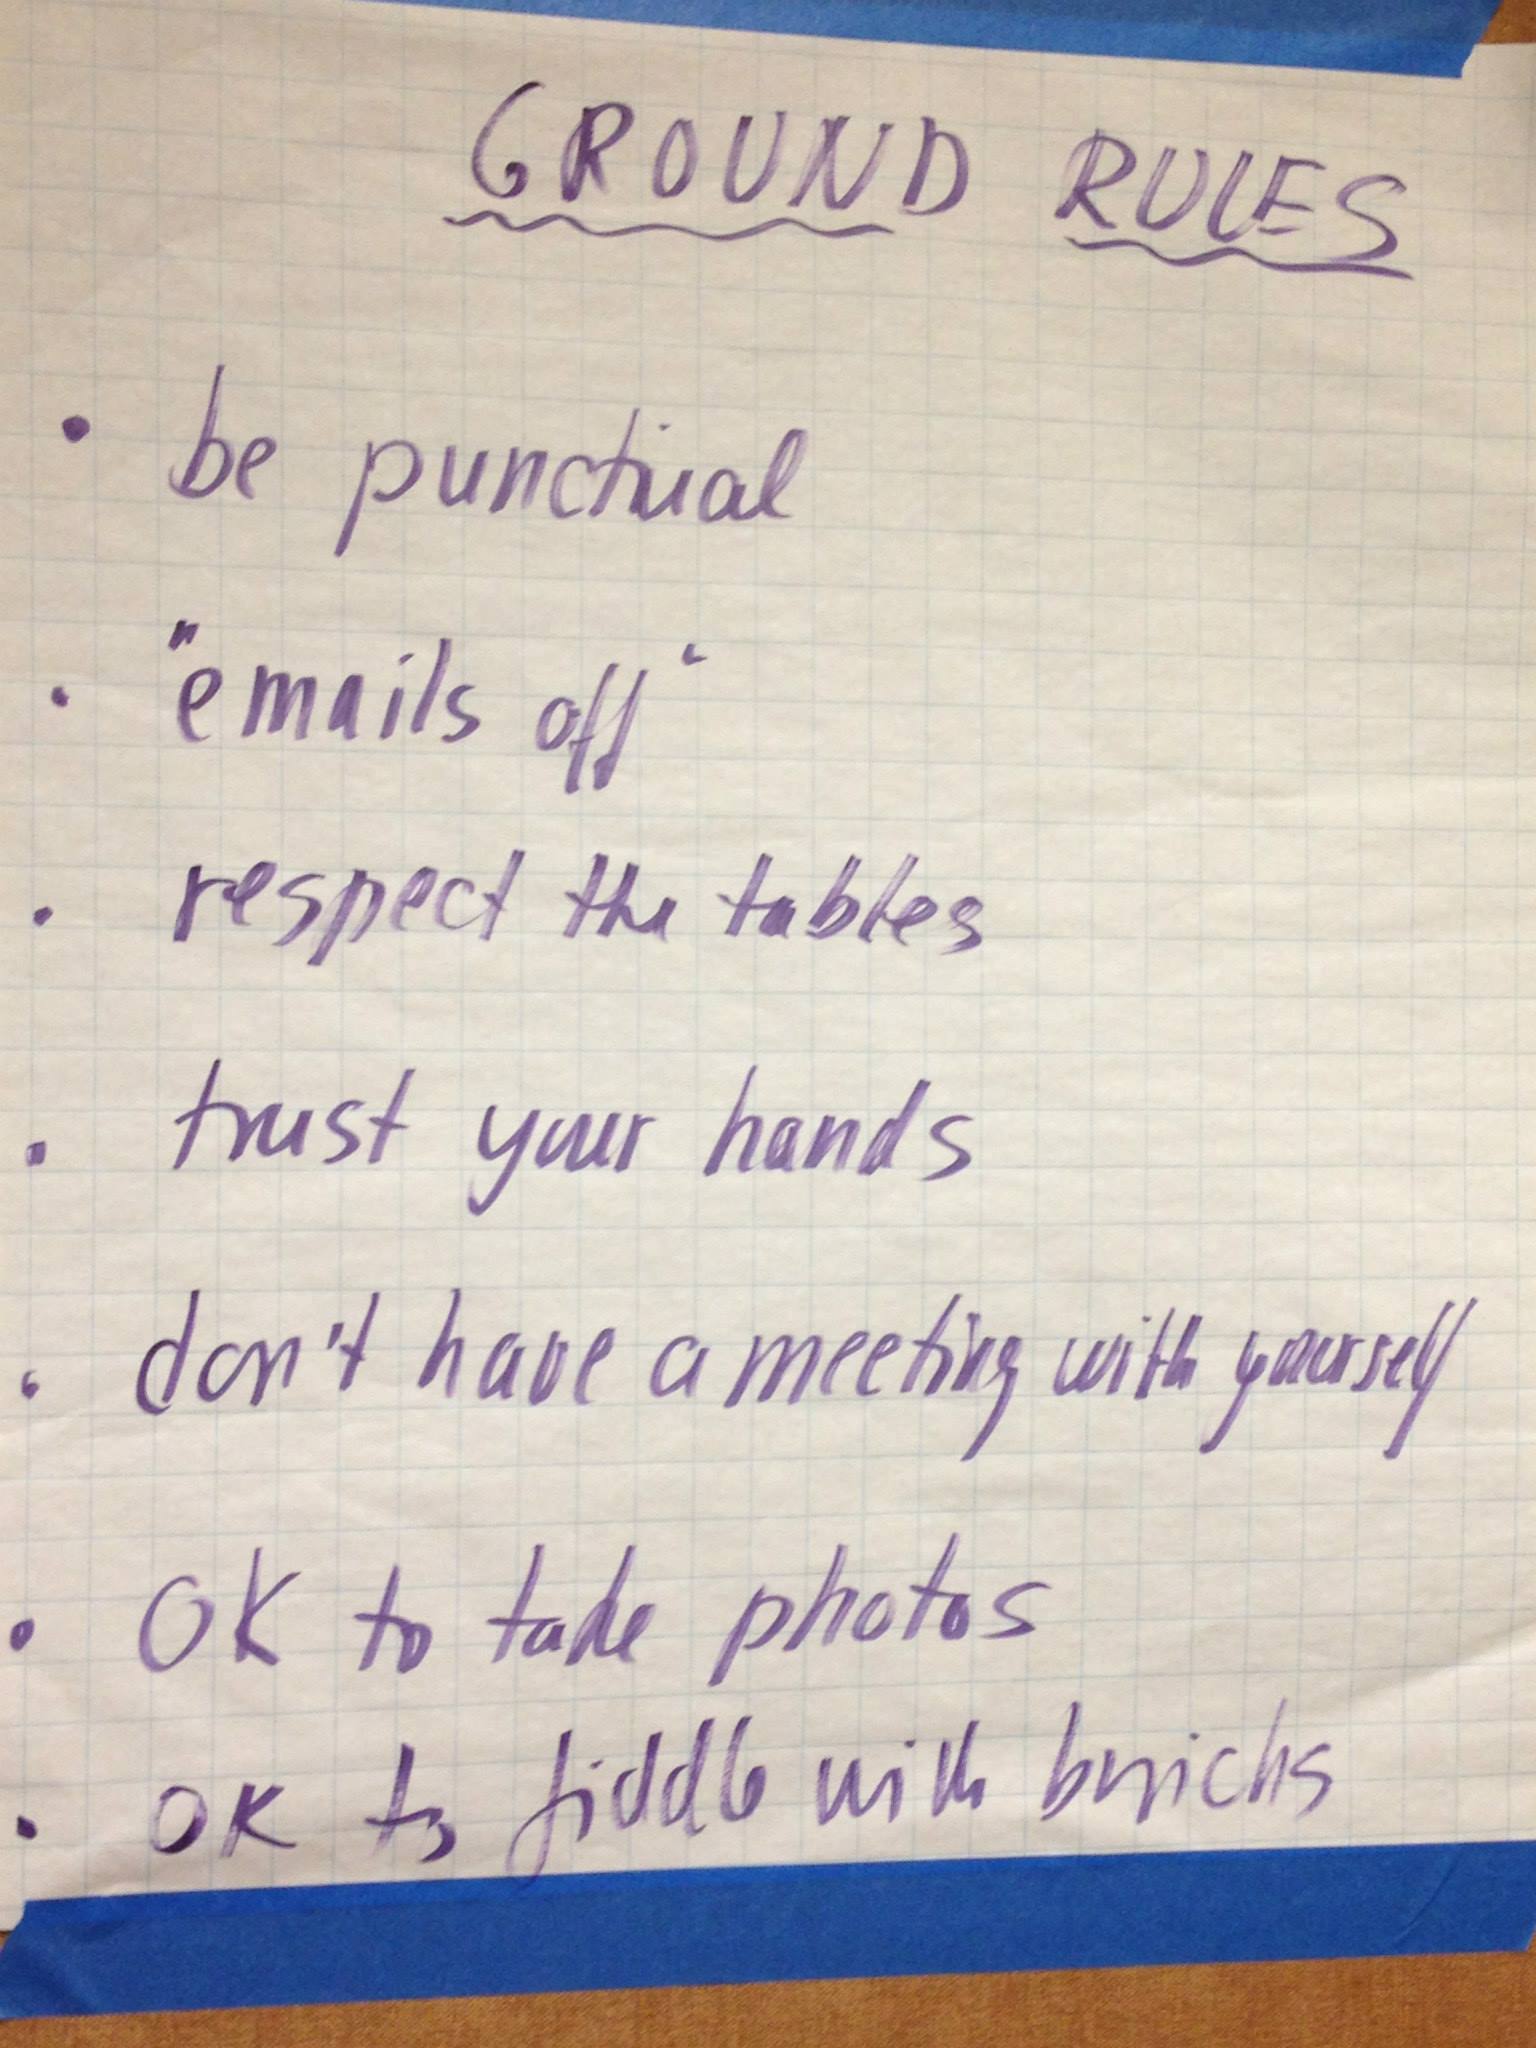 GROUND RULES
• be punctual
• "emails off"
• respect the tables
• trust your hands
• don't have a meeting with yourself
• OK to take photos
• OK to fiddle with bricks